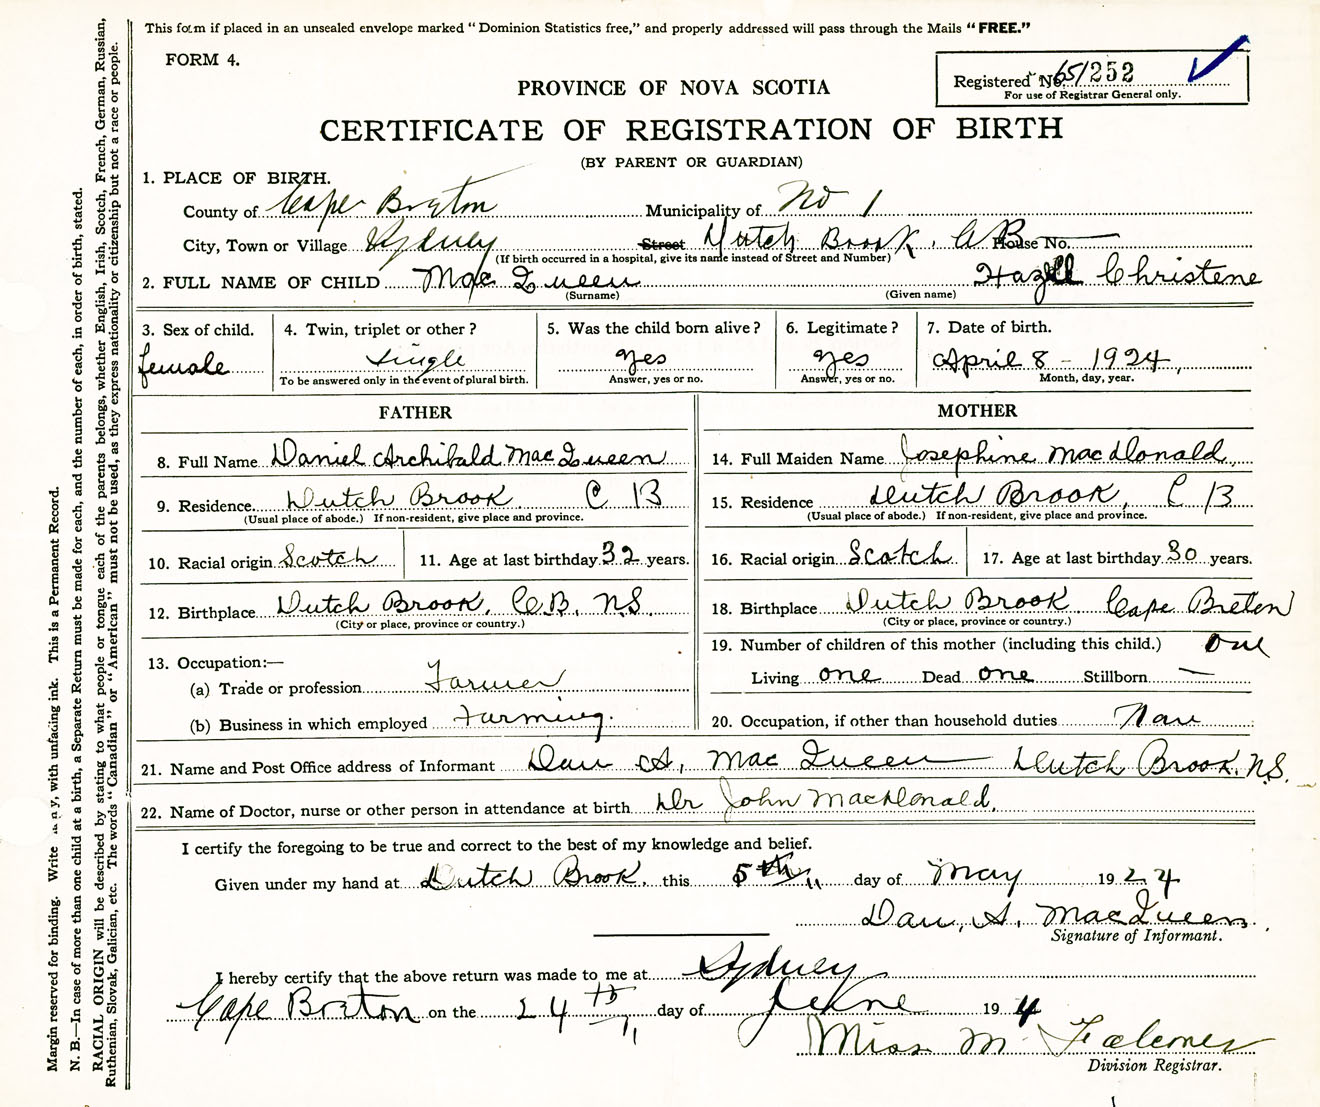 This form if placed in an unsealed envelope marked "Dominion Statistics free," and properly addressed will pass through the Mails "FREE."
FORM 4.
Registered No. 651252
For use of Registrar General only.
PROVINCE OF NOVA SCOTIA
CERTIFICATE OF REGISTRATION OF BIRTH
(BY PARENT OR GUARDIAN)
1. PLACE OF BIRTH.
County of Cape Breton Municipality of No 1
City, Town or Village Sydney Street Dutch Brook. C B House No.
(If birth occurred in a hospital, give its name instead of Street and Number)
2. FULL NAME OF CHILD Mac Queen Hazell Christene
(Surname) (Given name)
3. Sex of child. 4. Twin, triplet or other? 5. Was the child born alive? 6. Legitimate? 7. Date of birth.
female single yes yes April 8 - 1924
To be answered only in the event of plural birth. Answer, yes or no. Answer, yes or no. Month, day, year.
FATHER
8. Full Name Daniel Archibald MacQueen
9. Residence Dutch Brook C B
(Usual place of abode.) If non-resident, give place and province.
10. Racial origin Scotch 11. Age at last birthday 32 years.
12. Birthplace Dutch Brook, C.B. N.S.
(City or place, province or country.)
13. Occupation:—
(a) Trade or profession Farmer
(b) Business in which employed Farming.
MOTHER
14. Full Maiden Name Josephine MacDonald
15. Residence Dutch Brook, C B
(Usual place of abode.) If non-resident, give place and province.
16. Racial origin Scotch 17. Age at last birthday 30 years.
18. Birthplace Dutch Brook Cape Breton
(City or place, province or country.)
19. Number of children of this mother (including this child.) one
Living one Dead one Stillborn —
20. Occupation, if other than household duties
21. Name and Post Office address of Informant Dan A. Mac Queen Dutch Brook. N.S.
22. Name of Doctor, nurse or other person in attendance at birth Dr John MacDonald.
I certify the foregoing to be true and correct to the best of my knowledge and belief.
Given under my hand at Dutch Brook. this 5th day of May 1924
Dan. A. MacQueen
Signature of Informant.
I hereby certify that the above return was made to me at Sydney
Cape Breton on the 24th day of June 19 4
Miss M Falconer
Division Registrar.
Margin reserved for binding. Write with unfading ink. This is a Permanent Record.
N. B.—In case of more than one child at a birth, a Separate Return must be made for each, and the number of each, in order of birth, stated.
RACIAL ORIGIN will be described by stating to what people or tongue each of the parents belongs, whether English, Irish, Scotch, French, German, Russian,
Ruthenian, Slovak, Galician, etc. The words "Canadian" or "American" must not be used, as they express nationality or citizenship but not a race or people.